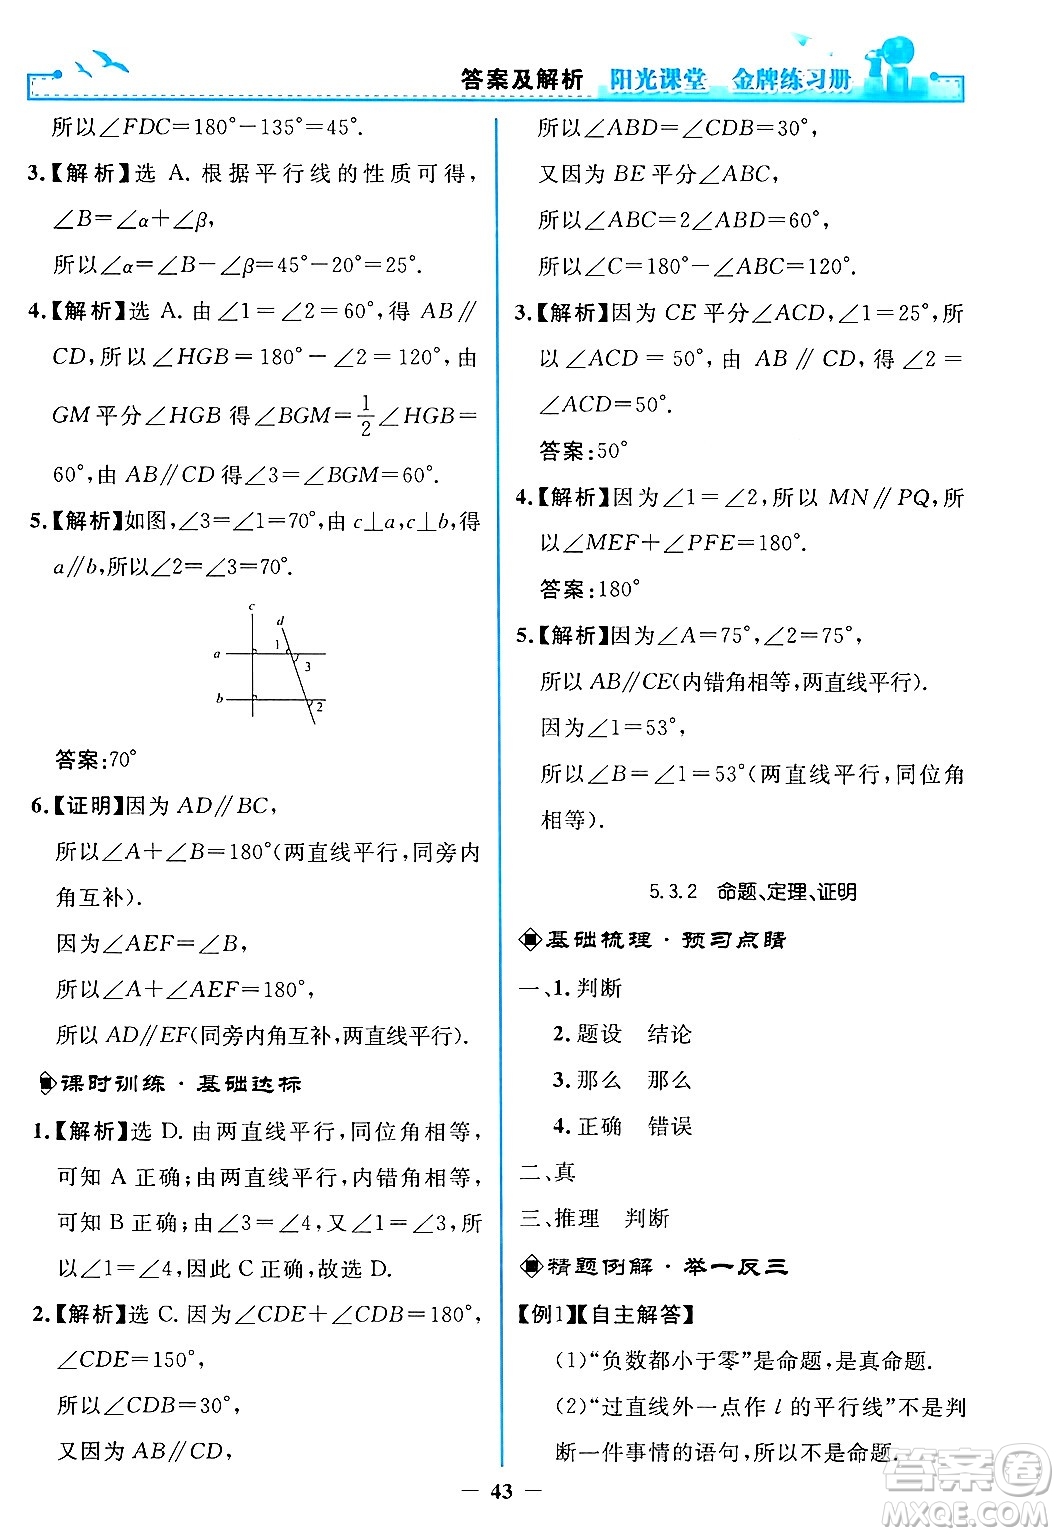 答案及解析 阳光课堂 金牌练习册
所以∠FDC=180°-135°=45°.
3.【解析】选 A. 根据平行线的性质可得,
∠B=∠α+∠β,
所以∠α=∠B-∠β=45°-20°=25°.
4.【解析】选 A. 由∠1=∠2=60°,得 AB∥
CD,所以∠HGB=180°-∠2=120°,由
GM 平分∠HGB 得∠BGM=1/2∠HGB=
60°,由 AB∥CD 得∠3=∠BGM=60°.
5.【解析】如图,∠3=∠1=70°,由 c⊥a,c⊥b,得
a∥b,所以∠2=∠3=70°.
c
d
a
1
3
b
2
答案:70°
6.【证明】因为 AD∥BC,
所以∠A+∠B=180°(两直线平行,同旁内
角互补).
因为∠AEF=∠B,
所以∠A+∠AEF=180°,
所以 AD∥EF(同旁内角互补,两直线平行).
课时训练·基础达标
1.【解析】选 D. 由两直线平行,同位角相等,
可知 A 正确;由两直线平行,内错角相等,
可知 B 正确;由∠3=∠4,又∠1=∠3,所
以∠1=∠4,因此 C 正确,故选 D.
2.【解析】选 C. 因为∠CDE+∠CDB=180°,
∠CDE=150°,
所以∠CDB=30°,
又因为 AB∥CD,
所以∠ABD=∠CDB=30°,
又因为 BE 平分∠ABC,
所以∠ABC=2∠ABD=60°,
所以∠C=180°-∠ABC=120°.
3.【解析】因为 CE 平分∠ACD,∠1=25°,所
以∠ACD=50°,由 AB∥CD,得∠2=
∠ACD=50°.
答案:50°
4.【解析】因为∠1=∠2,所以 MN∥PQ,所
以∠MEF+∠PFE=180°.
答案:180°
5.【解析】因为∠A=75°,∠2=75°,
所以 AB∥CE(内错角相等,两直线平行).
因为∠1=53°,
所以∠B=∠1=53°(两直线平行,同位角
相等).
5.3.2 命题、定理、证明
基础梳理·预习点睛
一、1.判断
2.题设 结论
3.那么 那么
4.正确 错误
二、真
三、推理 判断
精题例解·举一反三
【例1】【自主解答】
(1)“负数都小于零”是命题,是真命题.
(2)“过直线外一点作 l 的平行线”不是判
断一件事情的语句,所以不是命题.
43
答案圈
MXQE.COM